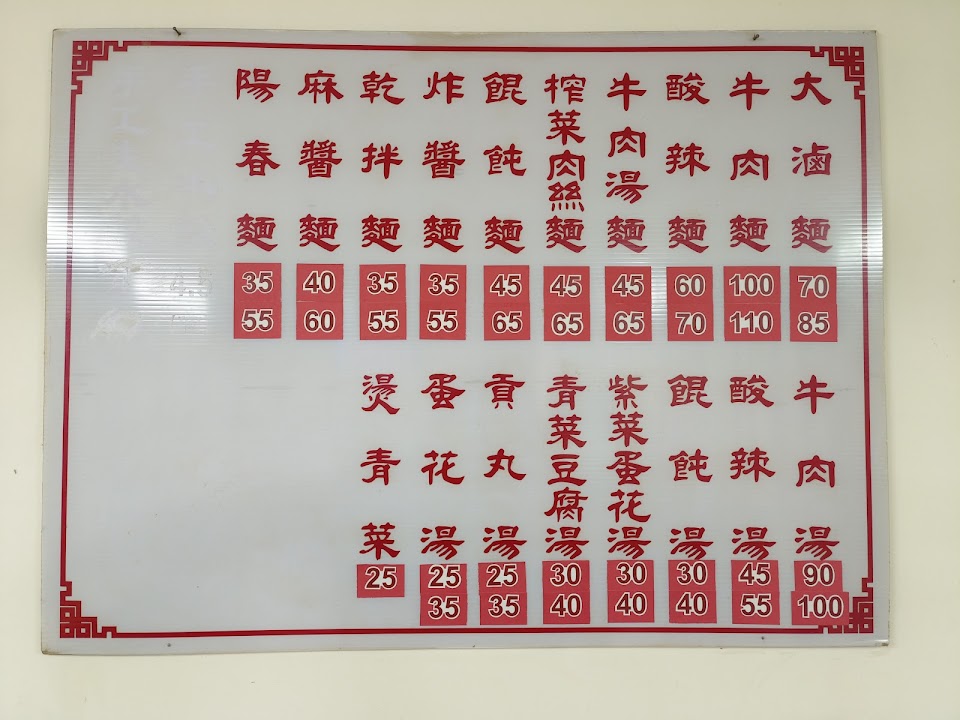 大滷麵 70 85
牛肉麵 100 110
酸辣麵 60 70
牛肉湯麵 45 65
榨菜肉絲麵 45 65
餛飩麵 45 65
炸醬麵 35 55
乾拌麵 35 55
麻醬麵 40 60
陽春麵 35 55
牛肉湯 90 100
酸辣湯 45 55
餛飩湯 30 40
紫菜蛋花湯 30 40
青菜豆腐湯 30 40
貢丸湯 25 35
蛋花湯 25 35
燙青菜 25